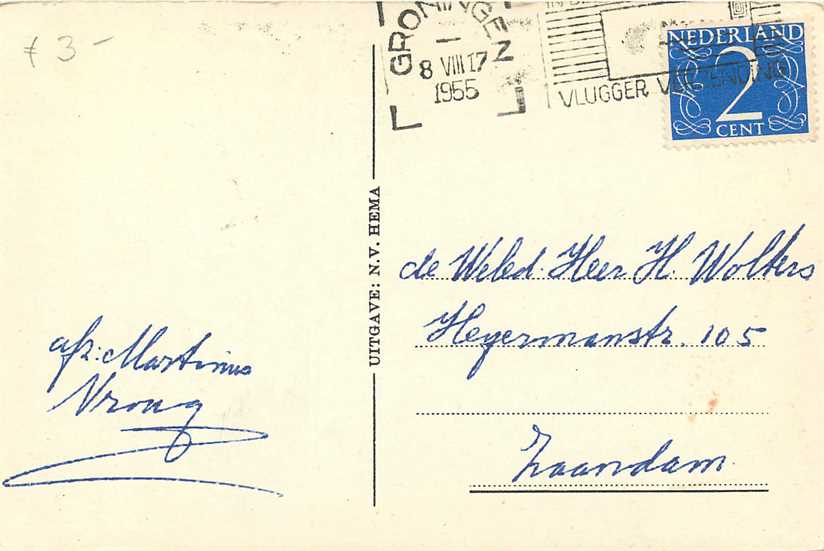 f 3-
GRONINGEN
8 VIII 17
1955
VLUGGER VERZENDING
NEDERLAND
2
CENT
UITGAVE: N.V. HEMA
de Weled. Heer H. Wolters
Heyermanstr. 105
Zaandam
afz: Martinus